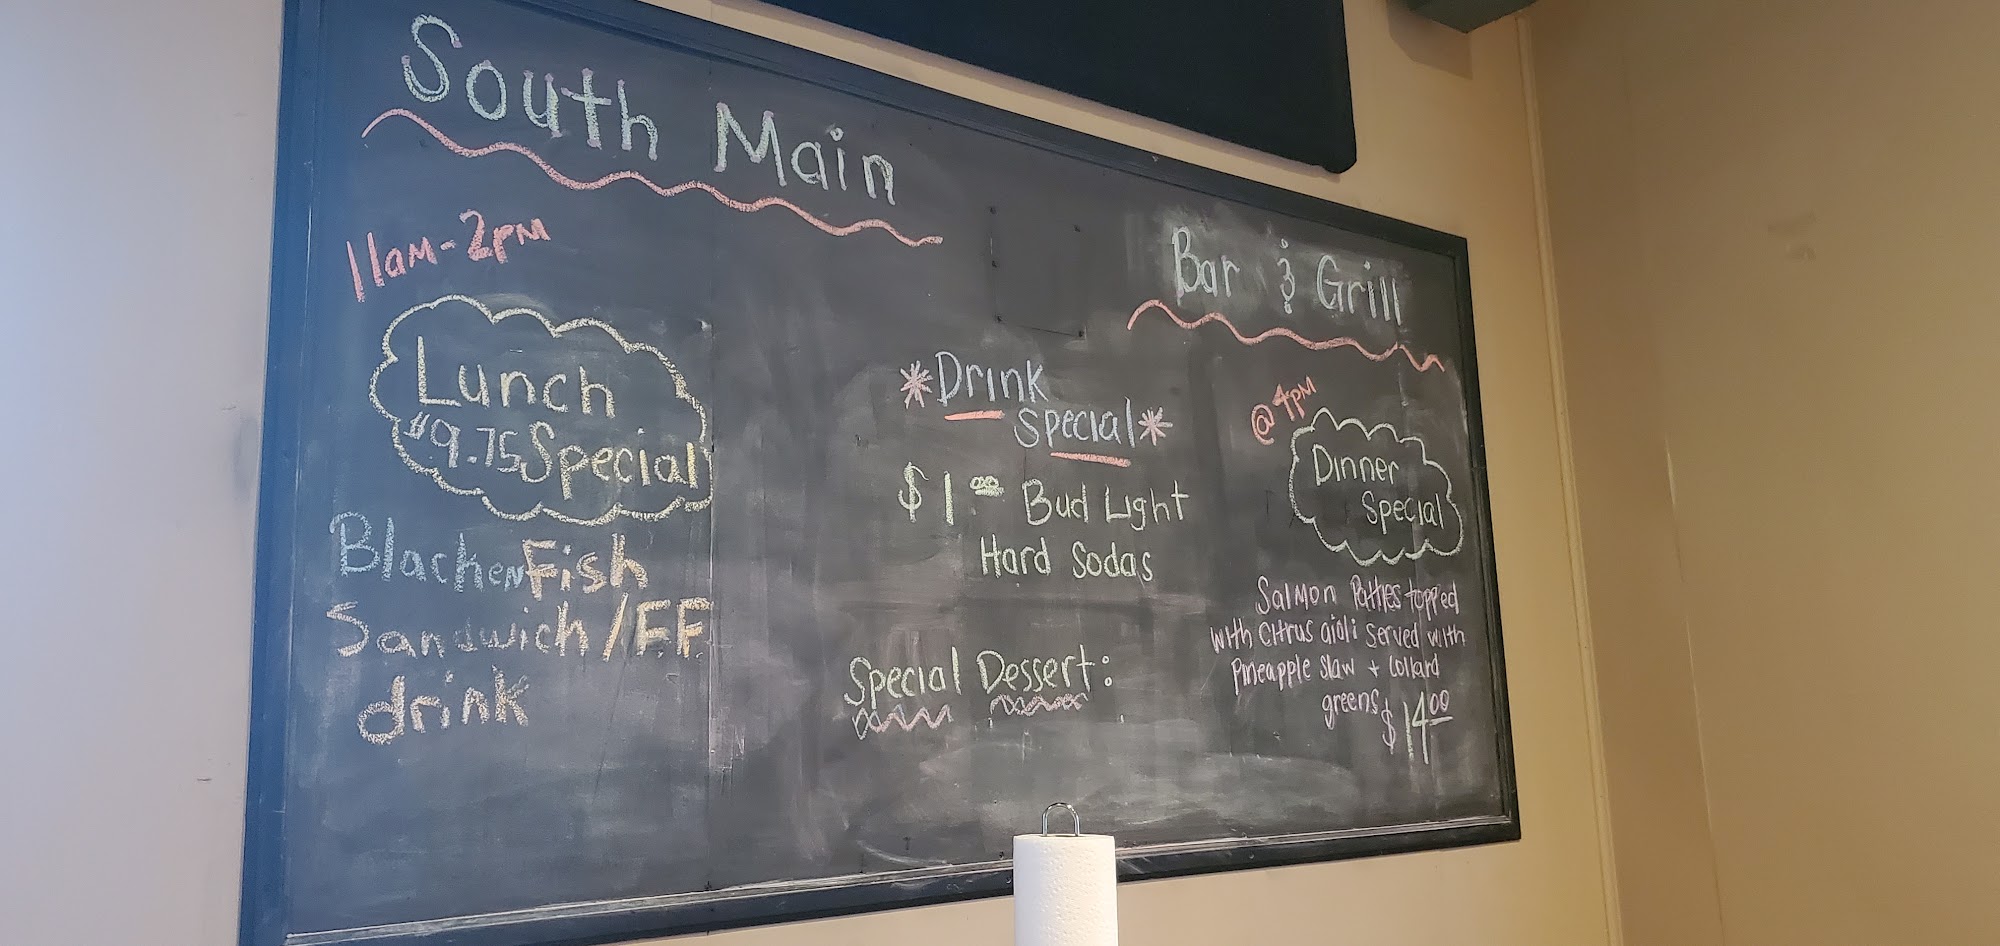 South Main
Bar & Grill
11am-2pm
Lunch
$9.75 Special
Blacken Fish
Sandwich/F.F.
drink
*Drink
Special*
$1.00 Bud Light
Hard Sodas
Special Dessert:
@ 4pm
Dinner
Special
Salmon Patties topped
with citrus aioli served with
Pineapple slaw + collard
greens $14.00